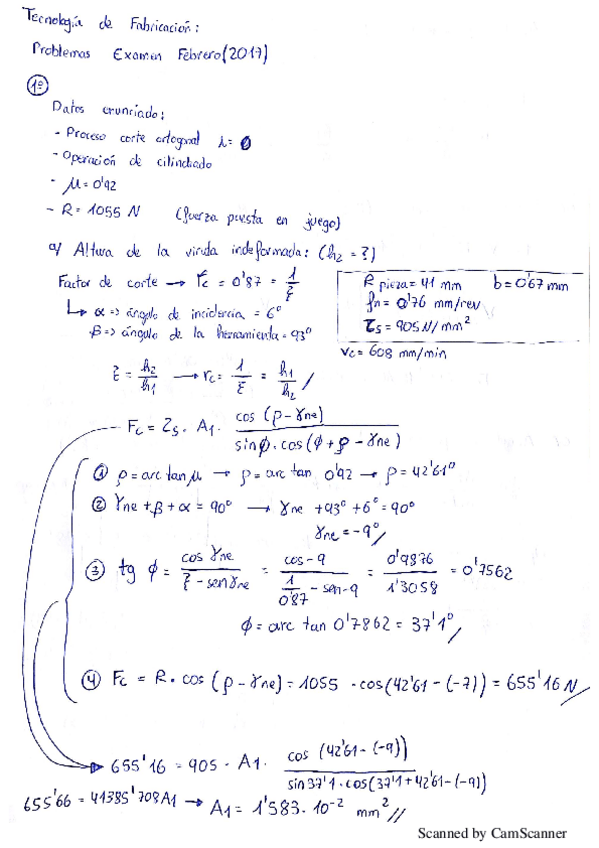 Tecnología de Fabricación:
Problemas Examen Febrero (2017)
1º
Datos enunciado:
- Proceso corte ortogonal λ = 0
- Operación de cilindrado
- μ = 0'92
- R = 1055 N (fuerza puesta en juego)
a) Altura de la viruta indeformada: (h2 = ?)
Factor de corte → rc = 0'87 = 1/ξ
↳ α => ángulo de incidencia = 6º
β => ángulo de la herramienta = 93º
R pieza = 41 mm b = 0'67 mm
fn = 0'76 mm/rev
τs = 905 N/mm²
vc = 608 mm/min
ξ = h2/h1 → rc = 1/ξ = h1/h2 /
Fc = τs · A1 · cos (ρ - γne) / sinφ · cos (φ + ρ - γne)
① ρ = arc tan μ → ρ = arc tan 0'92 → ρ = 42'61º
② γne + β + α = 90º → γne + 93º + 6º = 90º
γne = -9º /
③ tg φ = cos γne / ξ - sen γne = cos -9 / 1/0'87 - sen -9 = 0'9876 / 1'3058 = 0'7562
φ = arc tan 0'7862 = 37'1º /
④ Fc = R · cos (ρ - γne) = 1055 · cos (42'61 - (-7)) = 655'16 N //
655'16 = 905 · A1 · cos (42'61 - (-9)) / sin 37'1 · cos (37'1 + 42'61 - (-9))
655'66 = 41385'708 A1 → A1 = 1'583 · 10⁻² mm² //
Scanned by CamScanner